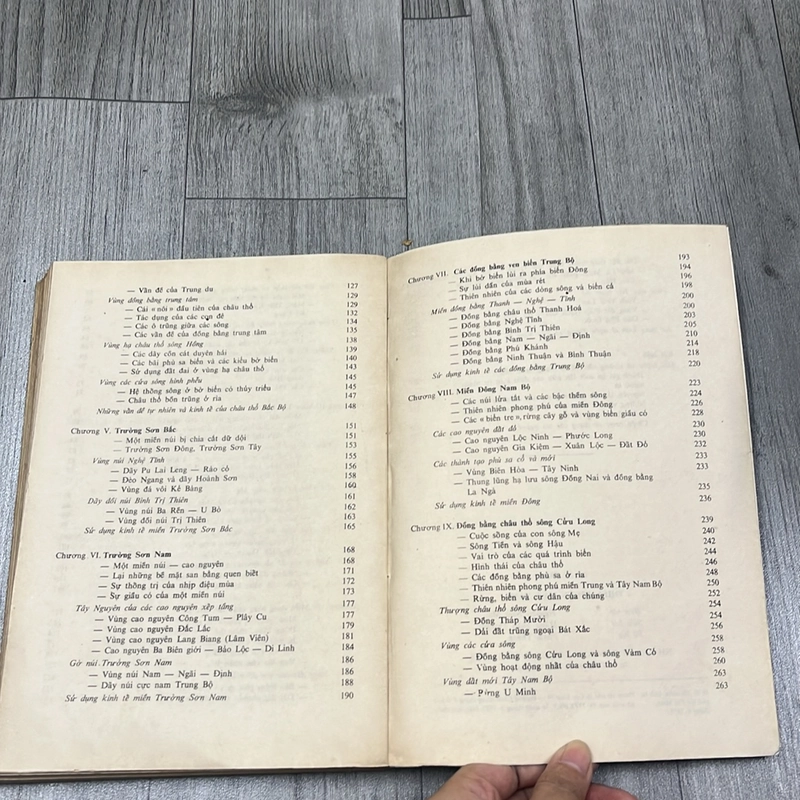 — Vấn đề của Trung du 127
Vùng đồng bằng trung tâm 129
— Cái «nôi» đầu tiên của châu thổ 129
— Tác dụng của các con đê 132
— Các ô trũng giữa các sông 134
— Các vấn đề của đồng bằng trung tâm 135
Vùng hạ châu thổ sông Hồng 138
— Các dãy cồn cát duyên hải 139
— Các bãi phù sa biển và các kiểu bờ biển 140
— Sử dụng đất đai ở vùng hạ châu thổ 143
Vùng các cửa sông hình phễu 145
— Hệ thống sông ở bờ biển có thủy triều 145
— Châu thổ bốn trũng ở rìa 147
Những vấn đề tự nhiên và kinh tế của châu thổ Bắc Bộ 148
Chương V. Trường Sơn Bắc 151
— Một miền núi bị chia cắt dữ dội 151
— Trường Sơn Đông, Trường Sơn Tây 153
Vùng núi Nghệ Tĩnh 155
— Dãy Pu Lai Leng — Rào cỏ 156
— Đèo Ngang và dãy Hoành Sơn 158
— Vùng đá vôi Kẻ Bàng 160
Dãy đồi núi Bình Trị Thiên 161
— Vùng núi Ba Rền — U Bò 162
— Vùng đồi núi Trị Thiên 163
Sử dụng kinh tế miền Trường Sơn Bắc 165
Chương VI. Trường Sơn Nam 168
— Một miền núi — cao nguyên 168
— Lại những bề mặt san bằng quen biết 171
— Sự thống trị của nhịp điệu mùa 172
— Sự giầu có của một miền núi 173
Tây Nguyên của các cao nguyên xếp tầng 177
— Vùng cao nguyên Công Tum — Plây Cu 177
— Vùng cao nguyên Đắc Lắc 179
— Vùng cao nguyên Lang Biang (Lâm Viên) 181
— Cao nguyên Ba Biên giới — Bảo Lộc — Di Linh 184
Gờ núi Trường Sơn Nam 186
— Vùng núi Nam — Ngãi — Định 186
— Dãy núi cực nam Trung Bộ 188
Sử dụng kinh tế miền Trường Sơn Nam 190
Chương VII. Các đồng bằng ven biển Trung Bộ 193
— Khi bờ biển lùi ra phía biển Đông 194
— Sự lùi dần của mùa rét 196
— Thiên nhiên của các dòng sông và biển cả 198
Miền đồng bằng Thanh — Nghệ — Tĩnh 200
— Đồng bằng châu thổ Thanh Hoá 200
— Đồng bằng Nghệ Tĩnh 203
— Đồng bằng Bình Trị Thiên 205
— Đồng bằng Nam — Ngãi — Định 210
— Đồng bằng Phú Khánh 214
— Đồng bằng Ninh Thuận và Bình Thuận 218
Sử dụng kinh tế các đồng bằng Trung Bộ 220
Chương VIII. Miền Đông Nam Bộ 223
— Các núi lửa tắt và các bậc thềm sông 224
— Thiên nhiên phong phú của miền Đông 226
— Các «biển tre», rừng cây gỗ và vùng biển giầu có 228
Các cao nguyên đất đỏ 230
— Cao nguyên Lộc Ninh — Phước Long 230
— Cao nguyên Gia Kiệm — Xuân Lộc — Đất Đỏ 232
Các thành tạo phù sa cổ và mới 233
— Vùng Biên Hòa — Tây Ninh 233
— Thung lũng hạ lưu sông Đồng Nai và đồng bằng
La Ngà 235
Sử dụng kinh tế miền Đông 236
Chương IX. Đồng bằng châu thổ sông Cửu Long 239
— Cuộc sống của con sông Mẹ 240
— Sông Tiền và sông Hậu 242
— Vai trò của các quá trình biển 244
— Hình thái của châu thổ 246
— Các đồng bằng phù sa ở rìa 248
— Thiên nhiên phong phú miền Trung và Tây Nam Bộ 250
— Rừng, biển và cư dân của chúng 252
Thượng châu thổ sông Cửu Long 254
— Đồng Tháp Mười 254
— Dải đất trũng ngoại Bát Xắc 256
Vùng các cửa sông 258
— Đồng bằng sông Cửu Long và sông Vàm Cỏ 258
— Vùng hoạt động nhất của châu thổ 260
Vùng đất mới Tây Nam Bộ 263
— Rừng U Minh 263